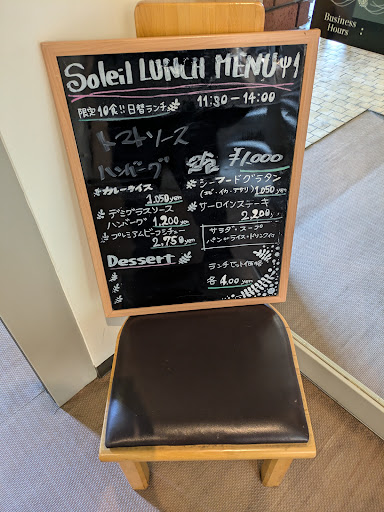 Business
Hours
Soleil LUNCH MENU
限定10食!! 日替ランチ 11:30-14:00
トマトソース
ハンバーグ ¥1,000
カレーライス
1,050yen
シーフードグラタン
(エビ・イカ・アサリ) 1,050yen
デミグラスソース
ハンバーグ 1,200yen
サーロインステーキ
2,200yen
プレミアムビーフシチュー
2,750yen
サラダ・スープ
パンorライス・ドリンク付
Dessert
ランチセット価格
各400yen